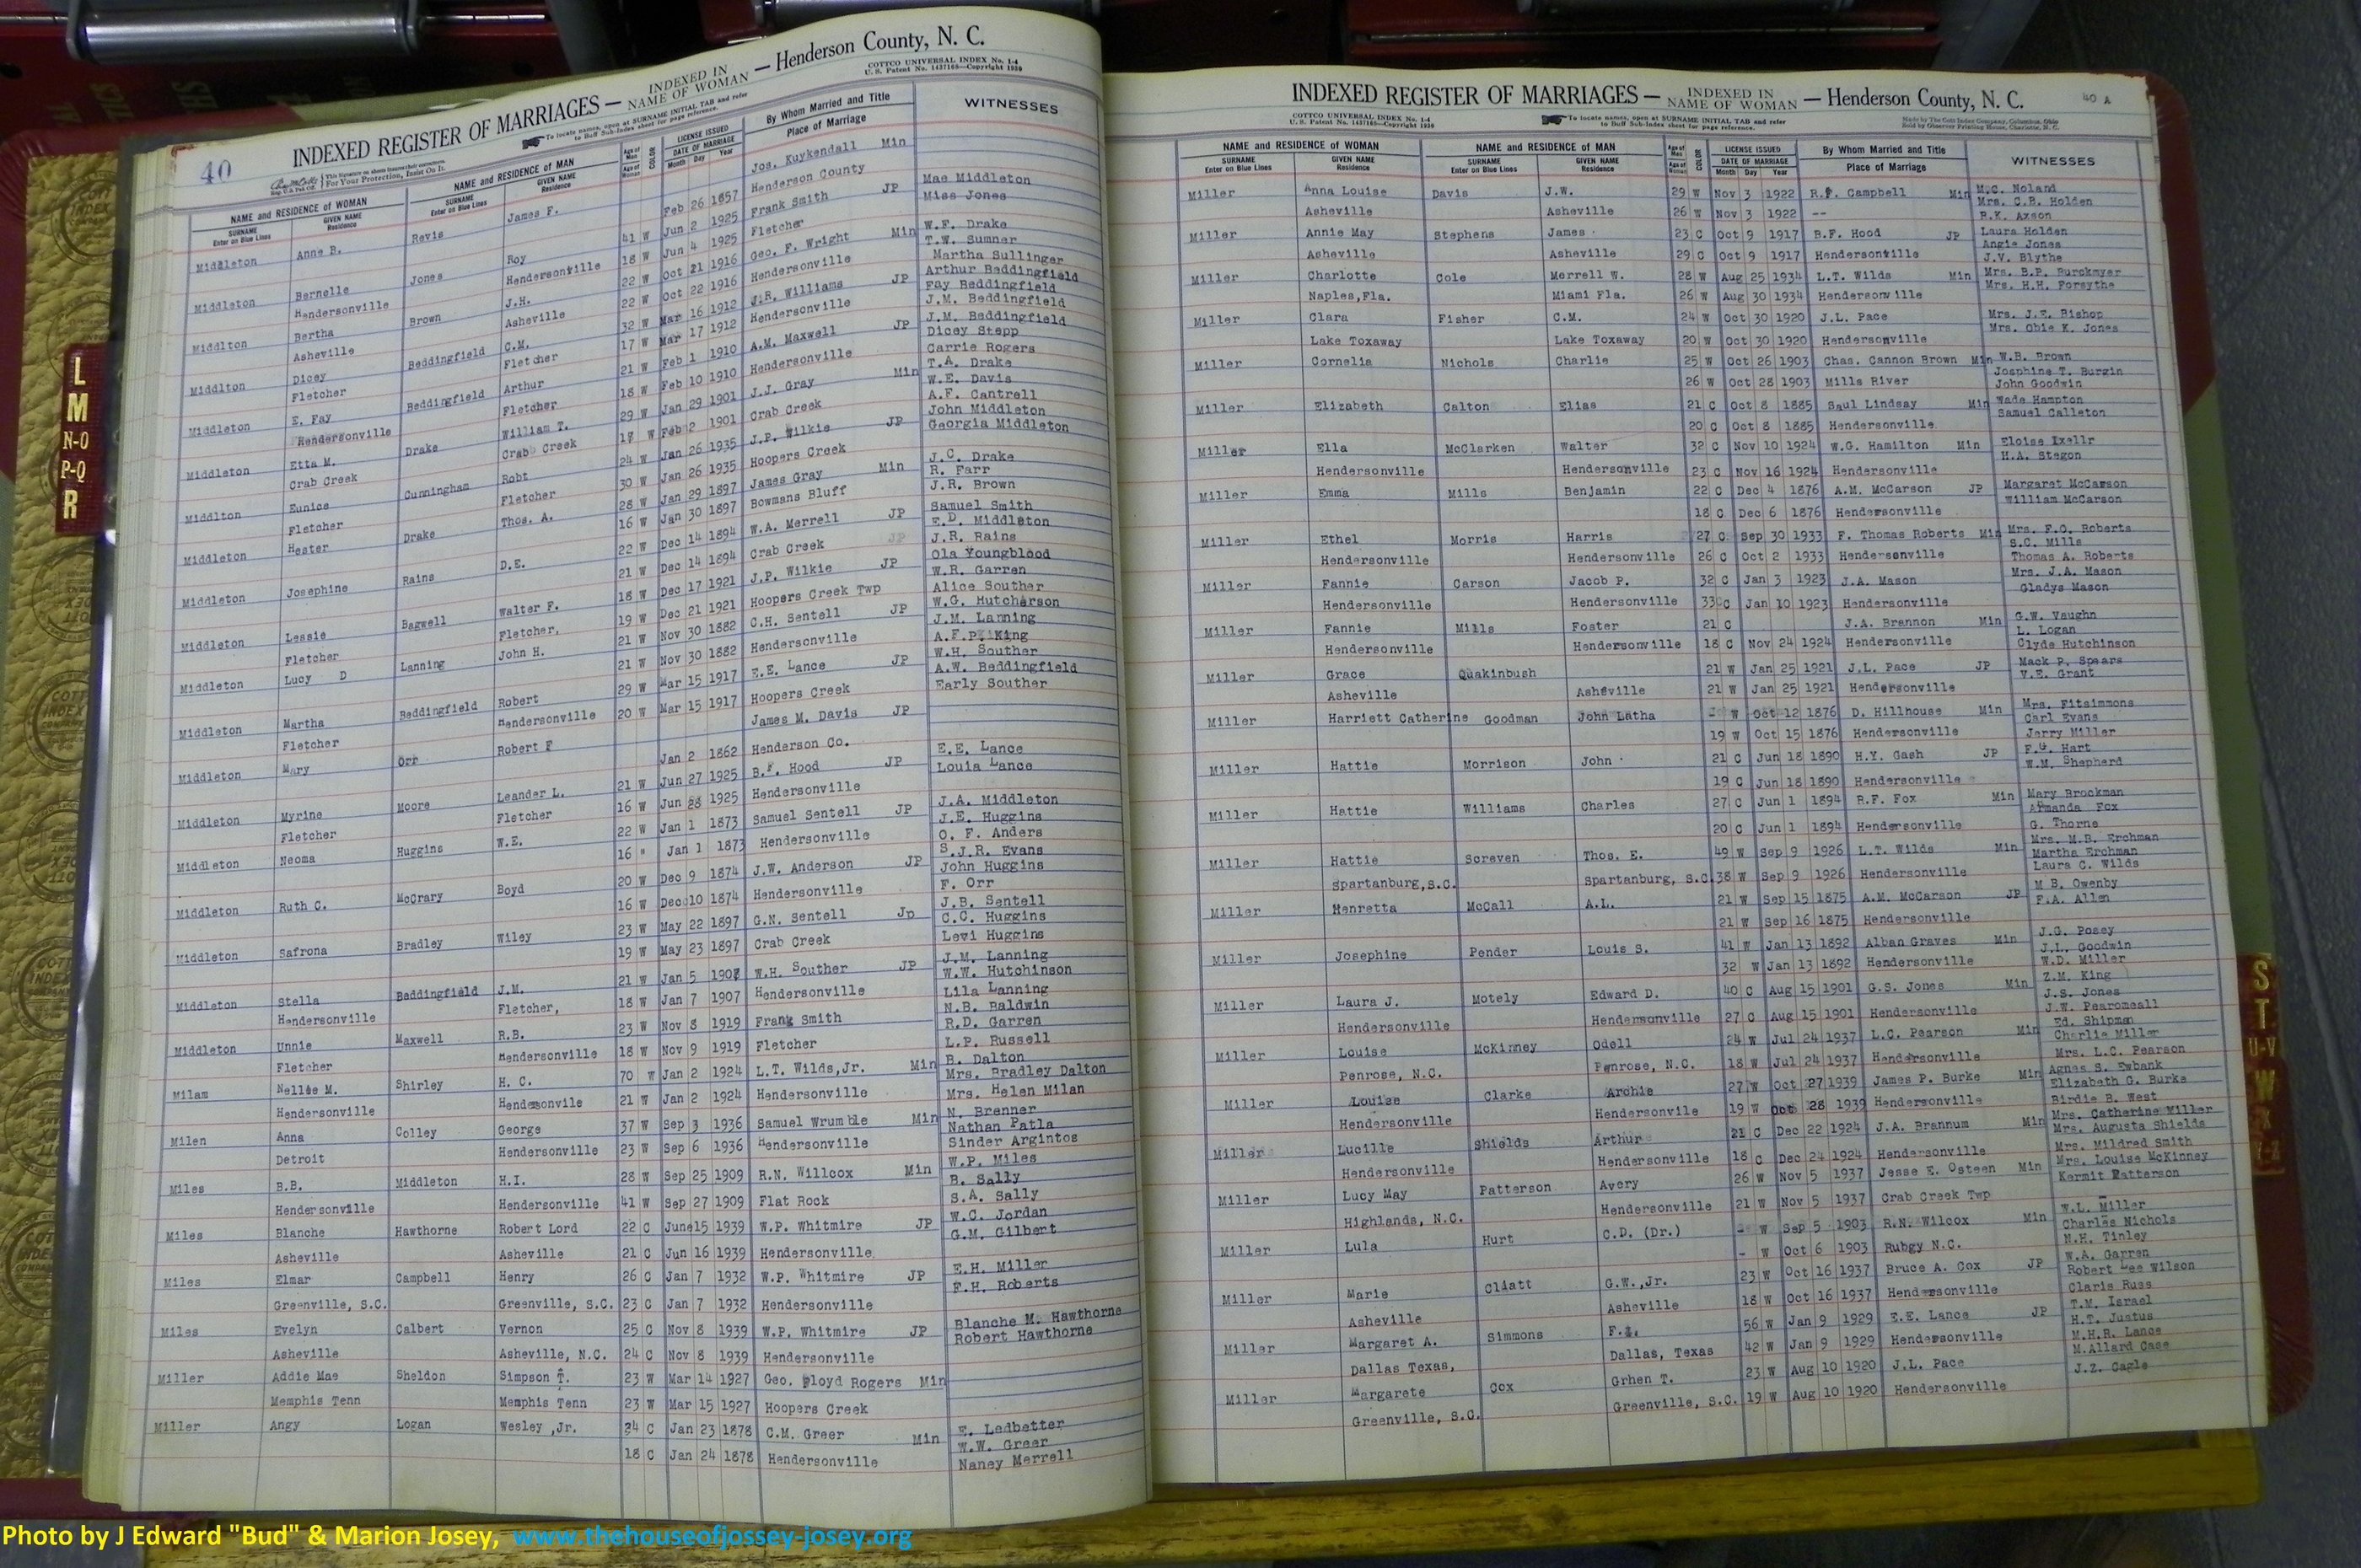 40
INDEXED REGISTER OF MARRIAGES — INDEXED IN NAME OF WOMAN — Henderson County, N. C.
COTTCO UNIVERSAL INDEX No. 1-4
U. S. Patent No. 1437165—Copyright 1936
To locate names, open at SURNAME INITIAL TAB and refer to Buff Sub-Index sheet for page reference.
NAME and RESIDENCE OF WOMAN NAME and RESIDENCE OF MAN COLOR LICENSE ISSUED By Whom Married and Title WITNESSES
SURNAME Enter on Blue Lines GIVEN NAME Residence SURNAME Enter on Blue Lines GIVEN NAME Residence Age of Man Age of Woman DATE OF MARRIAGE Month Day Year Place of Marriage
Middleton Anne B. Revis James F. Jos. Kuykendall Min
Feb 26 1857 Henderson County
Middleton Bernelle Jones Roy 41 W Jun 2 1925 Frank Smith JP Mae Middleton
Hendersonville Hendersonville 18 W Jun 4 1925 Fletcher Miss Jones
Middlton Bertha Brown J.H. 22 W Oct 21 1916 Geo. F. Wright Min W.F. Drake
Asheville Asheville 22 W Oct 22 1916 Hendersonville T.W. Sumner
Martha Sullinger
Middlton Dicey Beddingfield C.M. 32 W Mar 16 1912 J.R. Williams JP Arthur Beddingfield
Fletcher Fletcher 17 W Mar 17 1912 Hendersonville Fay Beddingfield
J.M. Beddingfield
Middleton E. Fay Beddingfield Arthur 21 W Feb 1 1910 A.M. Maxwell JP J.M. Beddingfield
Hendersonville Fletcher 18 W Feb 10 1910 Hendersonville Dicey Stepp
Carrie Rogers
Middleton Etta M. Drake William T. 29 W Jan 29 1901 J.J. Gray Min T.A. Drake
Crab Creek Crab Creek 17 W Feb 2 1901 Crab Creek W.E. Davis
A.F. Cantrell
Middlton Eunice Cunningham Robt 24 W Jan 26 1935 J.P. Wilkie JP John Middleton
Fletcher Fletcher 30 W Jan 26 1935 Hoopers Creek Georgia Middleton
Middleton Hester Drake Thos. A. 28 W Jan 29 1897 James Gray Min J.C. Drake
16 W Jan 30 1897 Bowmans Bluff R. Farr
J.R. Brown
Middleton Josephine Rains D.E. 22 W Dec 14 1894 W.A. Merrell JP Samuel Smith
21 W Dec 14 1894 Crab Creek E.D. Middleton
J.R. Rains
Middleton Lessie Bagwell Walter F. 18 W Dec 17 1921 J.P. Wilkie JP Ola Youngblood
Fletcher Fletcher, 19 W Dec 21 1921 Hoopers Creek Twp W.R. Garren
Alice Souther
Middleton Lucy D Lanning John H. 21 W Nov 30 1882 C.H. Sentell JP W.G. Hutcherson
21 W Nov 30 1882 Hendersonville J.M. Lanning
A.F.P. King
Middleton Martha Beddingfield Robert 29 W Mar 15 1917 E.E. Lance JP W.H. Souther
Fletcher Hendersonville 20 W Mar 15 1917 Hoopers Creek A.W. Beddingfield
Early Souther
Middleton Mary Orr Robert F James M. Davis JP
Jan 2 1862 Henderson Co.
Middleton Myrine Moore Leander L. 21 W Jun 27 1925 B.F. Hood JP E.E. Lance
Fletcher Fletcher 16 W Jun 28 1925 Hendersonville Louia Lance
Middleton Neoma Huggins W.E. 22 W Jan 1 1873 Samuel Sentell JP J.A. Middleton
16 " Jan 1 1873 Hendersonville J.E. Huggins
O. F. Anders
Middleton Ruth C. McCrary Boyd 20 W Dec 9 1874 J.W. Anderson JP S.J.R. Evans
16 W Dec 10 1874 Hendersonville John Huggins
F. Orr
Middleton Safrona Bradley Wiley 23 W May 22 1897 G.N. Sentell Jp J.B. Sentell
19 W May 23 1897 Crab Creek C.C. Huggins
Levi Huggins
Middleton Stella Beddingfield J.M. 21 W Jan 5 1907 W.H. Souther JP J.M. Lanning
Hendersonville Fletcher, 18 W Jan 7 1907 Hendersonville W.W. Hutchinson
Lila Lanning
Middleton Unnie Maxwell R.B. 23 W Nov 8 1919 Frank Smith N.B. Baldwin
Fletcher Hendersonville 18 W Nov 9 1919 Fletcher R.D. Garren
L.P. Russell
Milam Nellie M. Shirley H. C. 70 W Jan 2 1924 L.T. Wilds,Jr. Min B. Dalton
Hendersonville Hendersonvile 21 W Jan 2 1924 Hendersonville Mrs. Bradley Dalton
Mrs. Helen Milan
Milen Anna Colley George 37 W Sep 3 1936 Samuel Wrumble Min N. Brenner
Detroit Hendersonville 23 W Sep 6 1936 Hendersonville Nathan Patla
Sinder Argintos
Miles B.B. Middleton H.I. 28 W Sep 25 1909 R.N. Willcox Min W.P. Miles
Hendersonville Hendersonville 41 W Sep 27 1909 Flat Rock B. Sally
S.A. Sally
Miles Blanche Hawthorne Robert Lord 22 C June 15 1939 W.P. Whitmire JP W.C. Jordan
Asheville Asheville 21 C Jun 16 1939 Hendersonville G.M. Gilbert
Miles Elmar Campbell Henry 26 C Jan 7 1932 W.P. Whitmire JP E.H. Miller
Greenville, S.C. Greenville, S.C. 23 C Jan 7 1932 Hendersonville F.H. Roberts
Miles Evelyn Calbert Vernon 25 C Nov 8 1939 W.P. Whitmire JP Blanche M. Hawthorne
Asheville Asheville, N.C. 24 C Nov 8 1939 Hendersonville Robert Hawthorne
Miller Addie Mae Sheldon Simpson T. 23 W Mar 14 1927 Geo. Floyd Rogers Min
Memphis Tenn Memphis Tenn 23 W Mar 15 1927 Hoopers Creek
Miller Angy Logan Wesley ,Jr. 24 C Jan 23 1878 C.M. Greer Min E. Ledbetter
18 C Jan 24 1878 Hendersonville W.W. Greer
Naney Merrell
INDEXED REGISTER OF MARRIAGES — INDEXED IN NAME OF WOMAN — Henderson County, N. C. 40 A
COTTCO UNIVERSAL INDEX No. 1-4
U. S. Patent No. 1437165—Copyright 1936
To locate names, open at SURNAME INITIAL TAB and refer to Buff Sub-Index sheet for page reference.
Made by The Cott Index Company, Columbus, Ohio
Sold by Observer Printing House, Charlotte, N. C.
NAME and RESIDENCE OF WOMAN NAME and RESIDENCE OF MAN COLOR LICENSE ISSUED By Whom Married and Title WITNESSES
SURNAME Enter on Blue Lines GIVEN NAME Residence SURNAME Enter on Blue Lines GIVEN NAME Residence Age of Man Age of Woman DATE OF MARRIAGE Month Day Year Place of Marriage
Miller Anna Louise Davis J.W. 29 W Nov 3 1922 R.P. Campbell Min M.C. Noland
Mrs. C.B. Holden
Asheville Asheville 26 W Nov 3 1922 -- R.K. Axson
Miller Annie May Stephens James 23 C Oct 9 1917 B.F. Hood JP Laura Holden
Angie Jones
Asheville Asheville 29 C Oct 9 1917 Hendersonville J.V. Blythe
Miller Charlotte Cole Merrell W. 28 W Aug 25 1934 L.T. Wilds Min Mrs. B.P. Burckmyer
Naples,Fla. Miami Fla. 26 W Aug 30 1934 Hendersonville Mrs. H.H. Forsythe
Miller Clara Fisher C.M. 24 W Oct 30 1920 J.L. Pace Mrs. J.E. Bishop
Lake Toxaway Lake Toxaway 20 W Oct 30 1920 Hendersonville Mrs. Obie K. Jones
Miller Cornelia Nichols Charlie 25 W Oct 26 1903 Chas. Cannon Brown Min W.B. Brown
Josphine T. Burgin
26 W Oct 28 1903 Mills River John Goodwin
Miller Elizabeth Calton Elias 21 C Oct 8 1885 Saul Lindsay Min Wade Hampton
20 C Oct 8 1885 Hendersonville Samuel Calleton
Miller Ella McClarken Walter 32 C Nov 10 1924 W.G. Hamilton Min Eloise Ixellr
Hendersonville Hendersonville 23 C Nov 16 1924 Hendersonville H.A. Stegon
Miller Emma Mills Benjamin 22 C Dec 4 1876 A.M. McCarson JP Margaret McCarson
18 C Dec 6 1876 Hendersonville William McCarson
Miller Ethel Morris Harris 27 C Sep 30 1933 F. Thomas Roberts Min Mrs. F.O. Roberts
S.C. Mills
Hendersonville Hendersonville 26 C Oct 2 1933 Hendersonville Thomas A. Roberts
Miller Fannie Carson Jacob P. 32 C Jan 3 1923 J.A. Mason Mrs. J.A. Mason
Hendersonville Hendersonville 33 C Jan 10 1923 Hendersonville Gladys Mason
Miller Fannie Mills Foster 21 C J.A. Brennon Min G.W. Vaughn
L. Logan
Hendersonville Hendersonville 18 C Nov 24 1924 Hendersonville Clyde Hutchinson
Miller Grace Quakinbush 21 W Jan 25 1921 J.L. Pace JP Mack P. Spears
Asheville Asheville 21 W Jan 25 1921 Hendersonville V.E. Grant
Miller Harriett Catherine Goodman John Latha - W Oct 12 1876 D. Hillhouse Min Mrs. Fitsimmons
Carl Evans
19 W Oct 15 1876 Hendersonville Jerry Miller
Miller Hattie Morrison John 21 C Jun 18 1890 H.Y. Gash JP F.G. Hart
19 C Jun 18 1890 Hendersonville W.M. Shepherd
Miller Hattie Williams Charles 27 C Jun 1 1894 R.F. Fox Min Mary Brockman
Armanda Fox
20 C Jun 1 1894 Hendersonville G. Thorne
Miller Hattie Screven Thos. E. 49 W Sep 9 1926 L.T. Wilds Min Mrs. M.B. Erchman
Martha Erchman
Spartanburg,S.C. Spartanburg, S.C. 38 W Sep 9 1926 Hendersonville Laura C. Wilds
Miller Henretta McCall A.L. 21 W Sep 15 1875 A.M. McCarson JP M B. Owenby
21 W Sep 16 1875 Hendersonville F.A. Allen
Miller Josephine Pender Louis S. 41 W Jan 13 1892 Alban Graves Min J.G. Posey
J.L. Goodwin
32 W Jan 13 1892 Hendersonville W.D. Miller
Miller Laura J. Motely Edward D. 40 C Aug 15 1901 G.S. Jones Min Z.M. King
J.S. Jones
Hendersonville Hendersonville 27 C Aug 15 1901 Hendersonville J.W. Pearomcall
Miller Louise McKinney Odell 24 W Jul 24 1937 L.C. Pearson Min Ed. Shipman
Charlie Miller
Penrose, N.C. Penrose, N.C. 18 W Jul 24 1937 Hendersonville Mrs. L.C. Pearson
Miller Louise Clarke Archie 27 W Oct 27 1939 James P. Burke Min Agnes S. Ewbank
Elizabeth G. Burke
Hendersonville Hendersonvile 19 W Oct 28 1939 Hendersonville Birdie B. West
Miller Lucille Shields Arthur 21 C Dec 22 1924 J.A. Brannum Min Mrs. Catherine Miller
Mrs. Augusta Shields
Hendersonville Hendersonville 18 C Dec 24 1924 Hendersonville Mrs. Mildred Smith
Miller Lucy May Patterson Avery 26 W Nov 5 1937 Jesse E. Osteen Min Mrs. Louise McKinney
Highlands, N.C. Hendersonville 21 W Nov 5 1937 Crab Creek Twp Kermit Patterson
Miller Lula Hurt C.D. (Dr.) - W Sep 5 1903 R.N. Wilcox Min W.L. Miller
Charles Nichols
- W Oct 6 1903 Rubgy N.C. N.H. Tinley
Miller Marie Cliatt G.W.,Jr. 23 W Oct 16 1937 Bruce A. Cox JP W.A. Garren
Robert Lee Wilson
Asheville Asheville 18 W Oct 16 1937 Hendersonville Claris Russ
Miller Margaret A. Simmons F. 56 W Jan 9 1929 E.E. Lance JP T.M. Israel
H.T. Justus
Dallas Texas, Dallas, Texas 42 W Jan 9 1929 Hendersonville M.H.R. Lance
Miller Margarete Cox Grhen T. 23 W Aug 10 1920 J.L. Pace M.Allard Case
Greenville, S.C. Greenville, S.C. 19 W Aug 10 1920 Hendersonville J.Z. Cagle
L
M
N-O
P-Q
R
S
T
U-V
W
Photo by J Edward "Bud" & Marion Josey, www.thehouseofjossey-josey.org